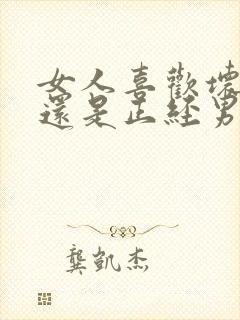 女人喜歡壞
還是正經男
龔凱杰